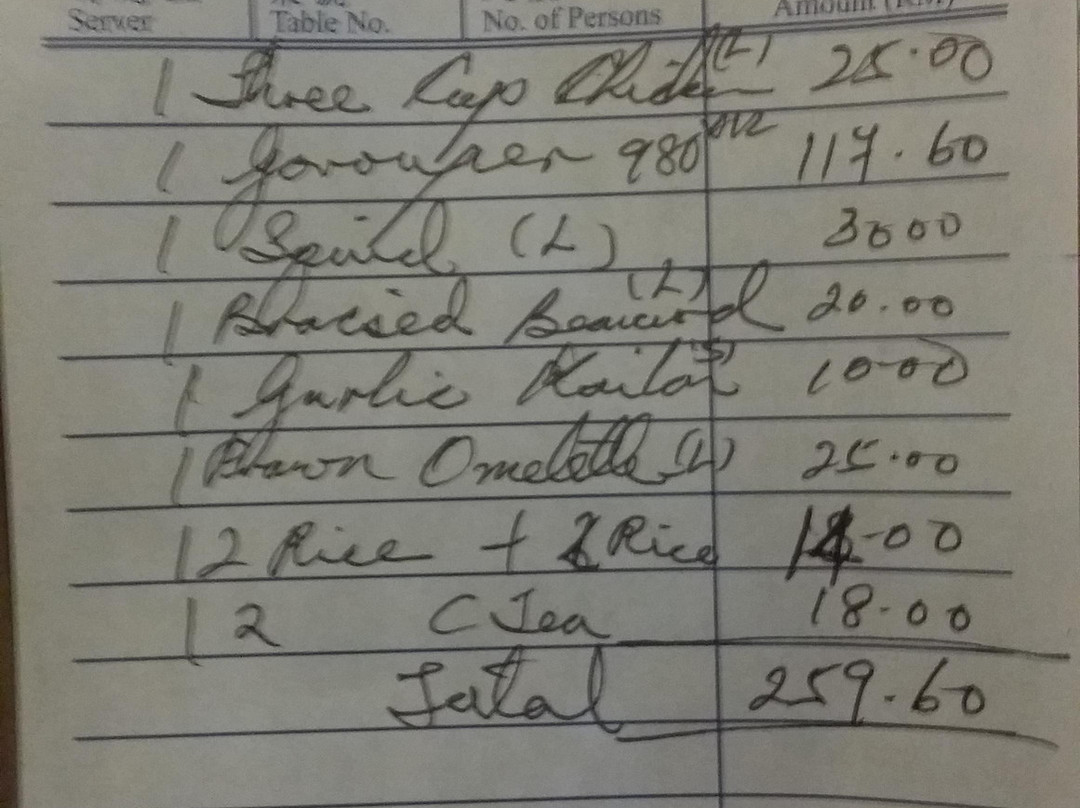 Server Table No. No. of Persons Amount (RM)
1 Three Cup Chicken (L) 25.00
1 Garouper 980 117.60
1 Squid (L) 30.00
1 Braised Beancurd (L) 20.00
1 Garlic Kailan (S) 10.00
1 Prawn Omelette (L) 25.00
12 Rice + 2 Rice 14.00
12 C Tea 18.00
Total 259.60